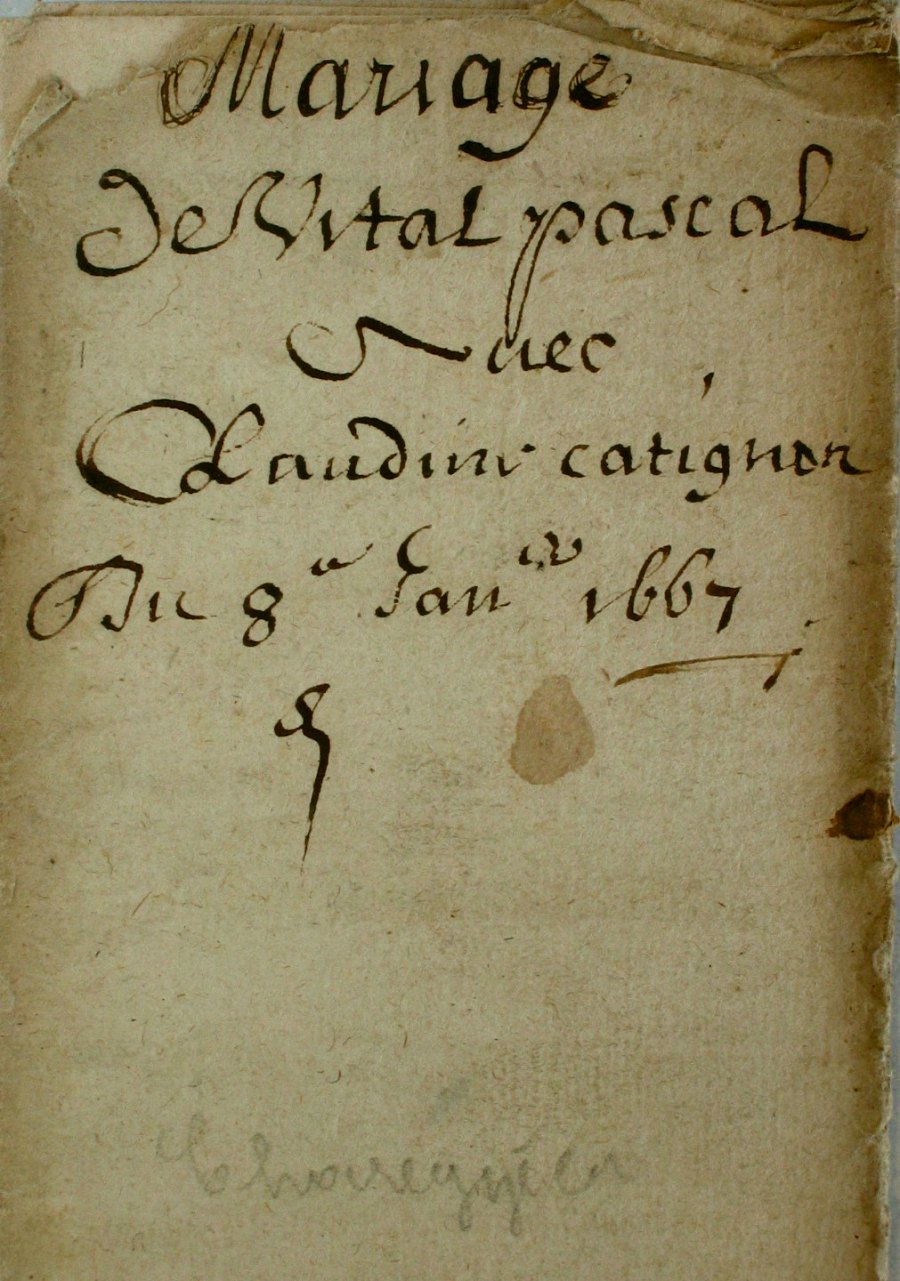 Mariage
de Vital pascal
Auec
Claudine catignon
Du 8e Januer 1667